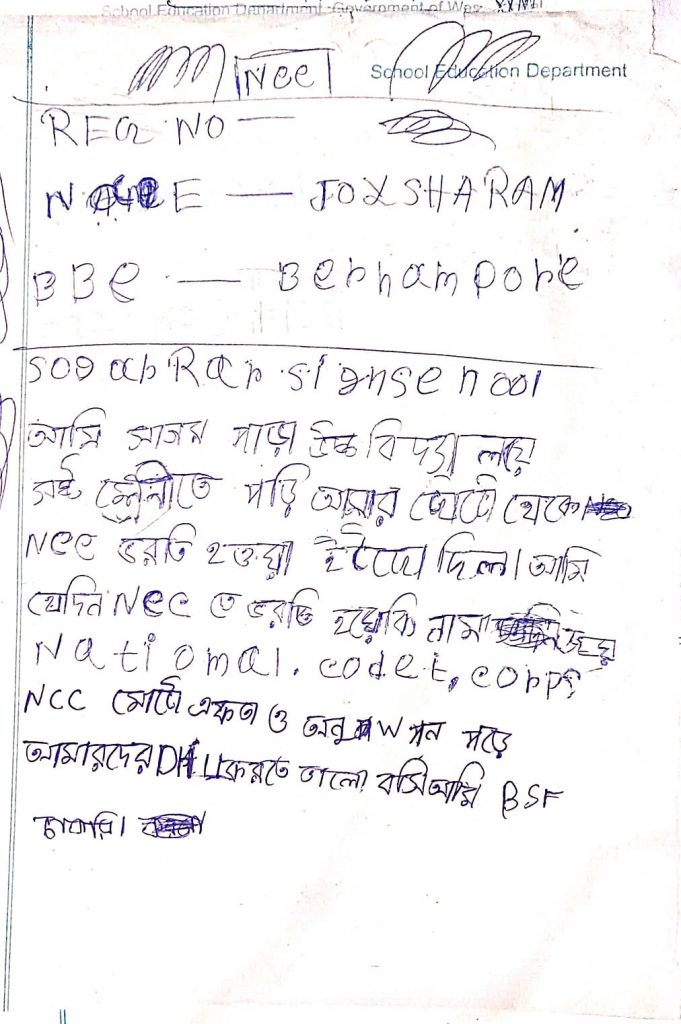 School Education Department Government of Wes
Ncc
School Education Department
REG NO —
N E — JOYSHARAM
BBC — Berhampore
আমি সাগর পাড়া উচ্চ বিদ্যা লয়ে
ষষ্ট শ্রেনীতে পড়ি আমার ছোটো থেকে
Ncc ভরতি হওয়া ইচ্ছে দিল। আমি
যেদিন Ncc তে ভরতি হয়েকি নাম
National. codet, corps
NCC মোটো একতা ও পরে
আমারদের করতে ভালো বসি আমি BSF